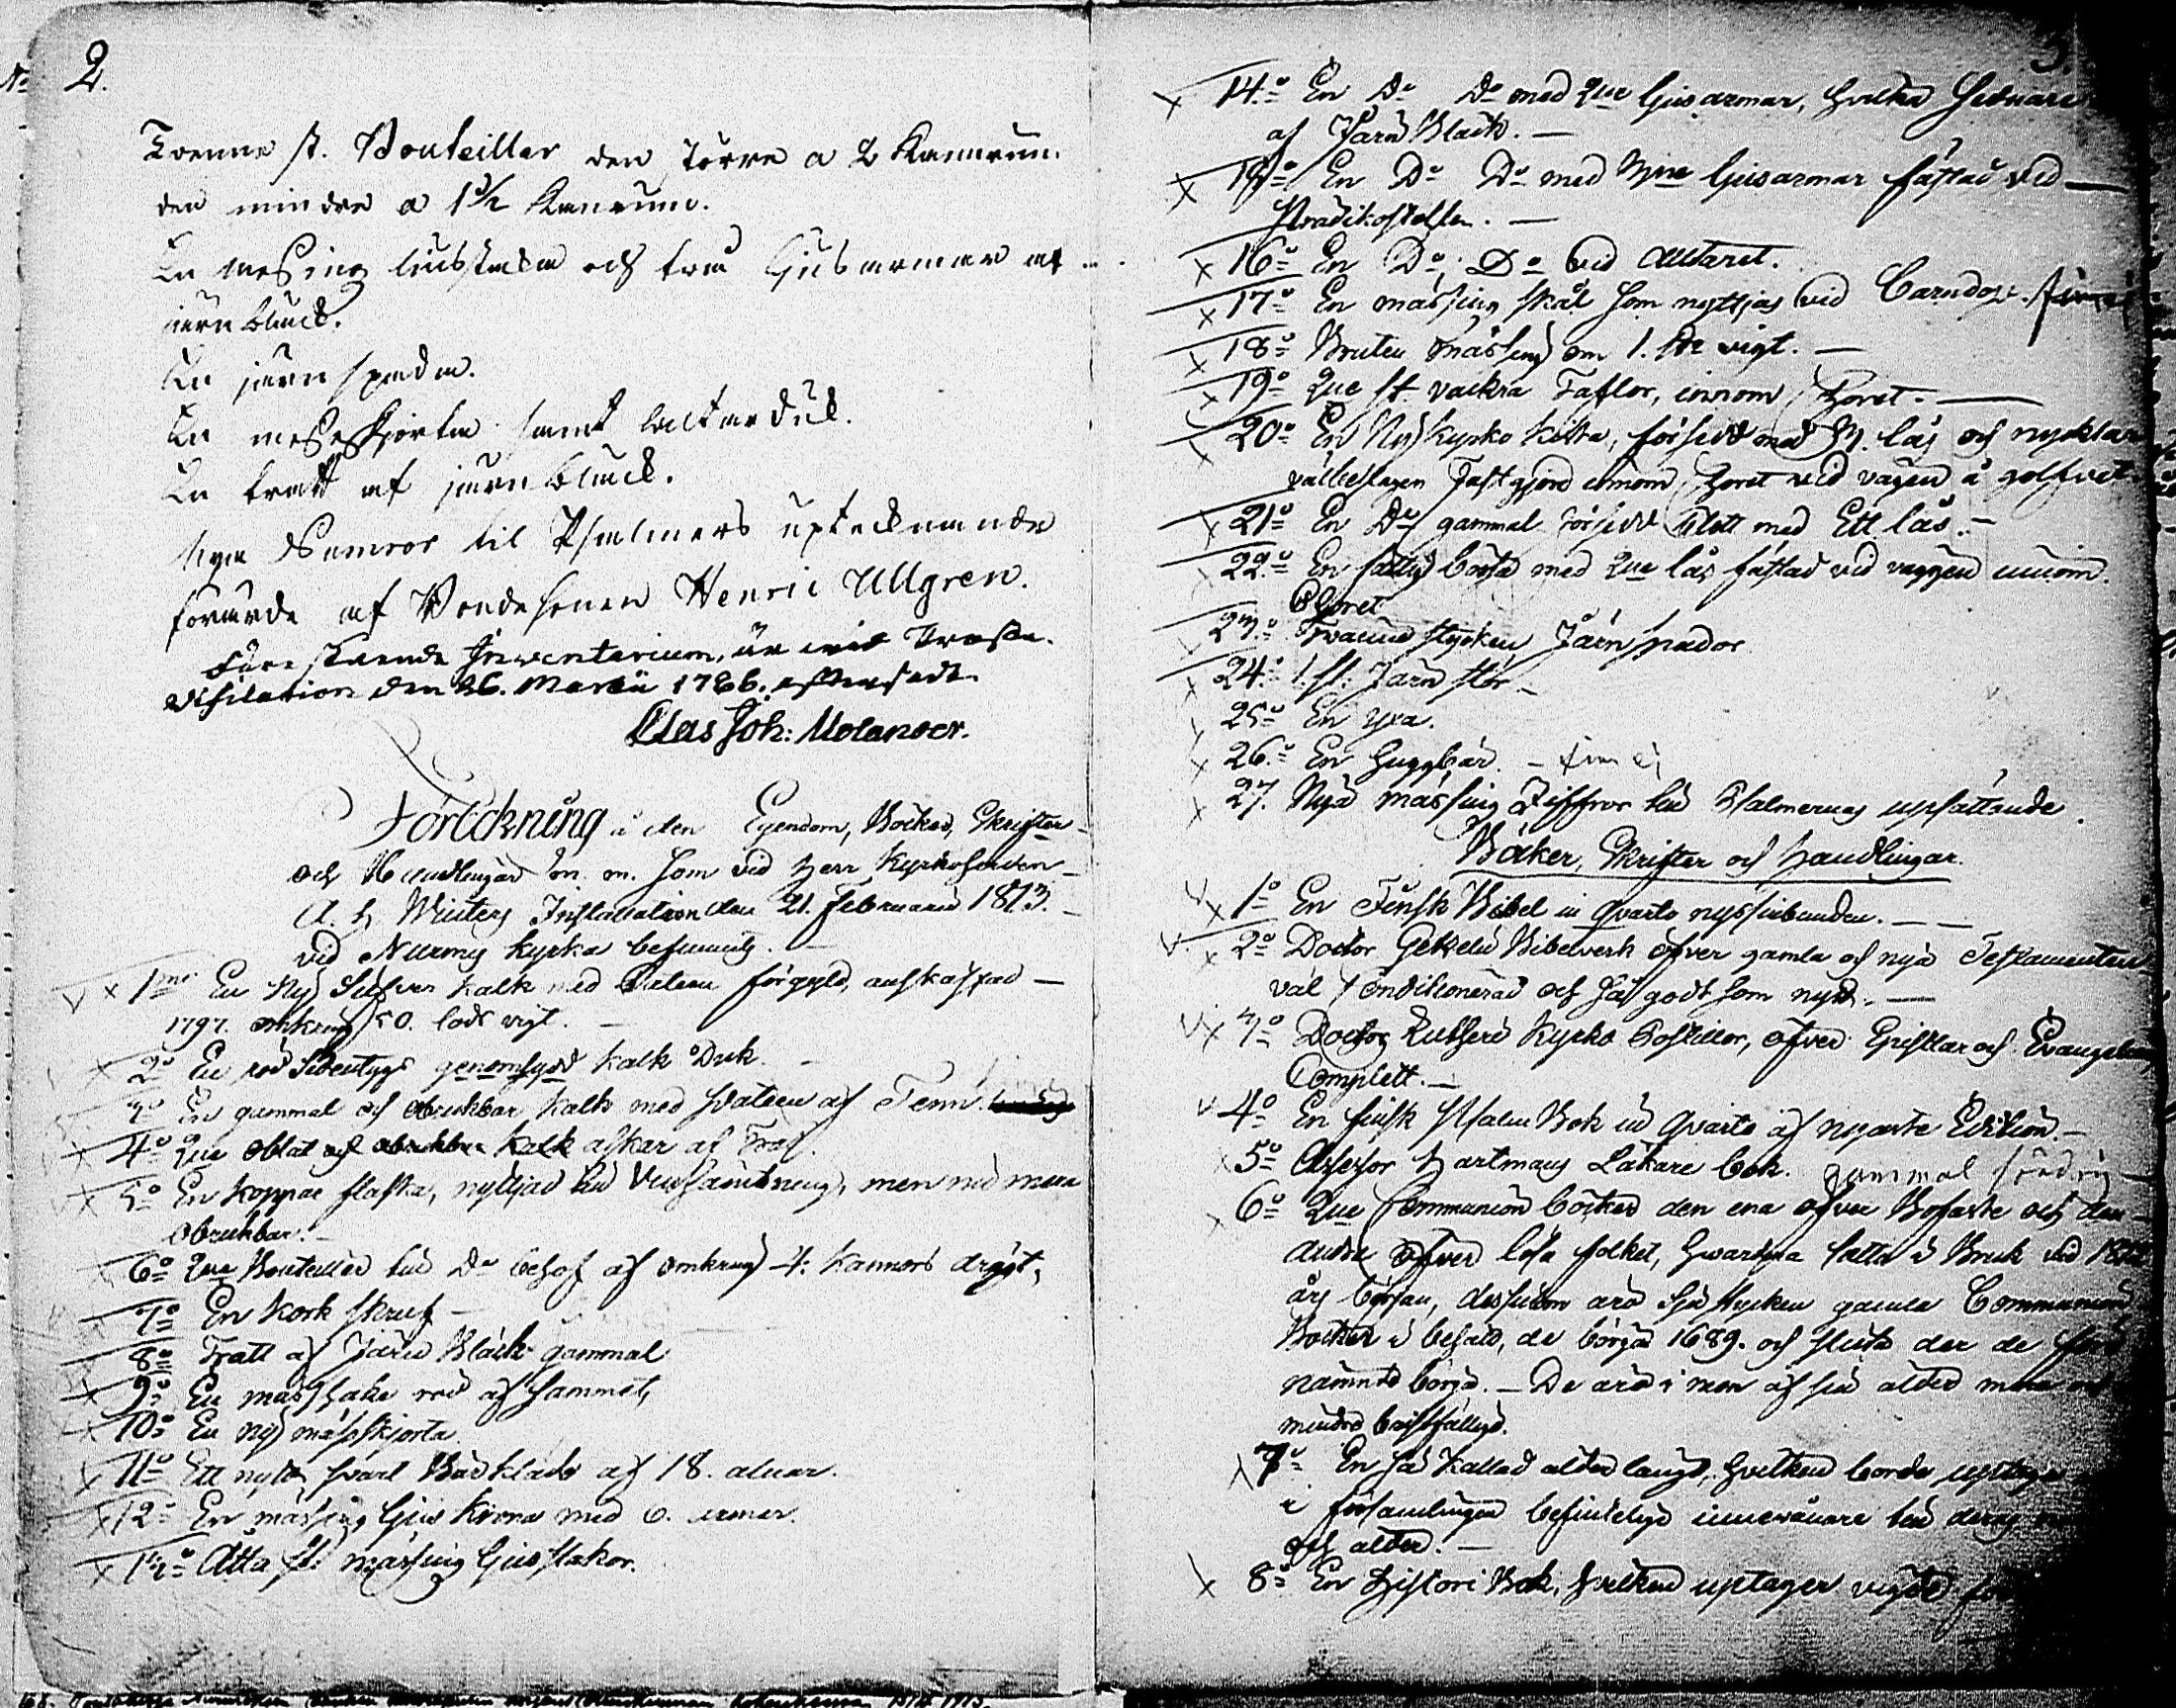 2.
Tvenne st. Bouteiller den större a 2 Kannrum
den mindre a 1 1/2 Kannrum.
En messing liusstaka och två Liusarmar af
jernbläck.
En jern spada.
En messeskjorta samt altarduk.
En tratt af jernbläck.
Nya Numror til Psalmers uptecknande
förärde af Bondesonen Henric Ullgren.
Förestående Inventarium, är vid Probste
visitation den 26. Martii 1786. efterset.
Clas Joh: Molander.
Förtekning å den Egendom, Böcker, Skrifter
och Handlingar m. m. som vid Herr Kyrkoherden
A. H. Winters Installation den 21. Februarii 1813.
vid Nurmis kyrka befunnits.
1mo En Ny Silfver Kalk med Paten förgyld, anskaffad
1797. omkring 50. lods vigt.
2o En röd Sidentygs genomsydd Kalk Duk.
3o En gammal och obrukbar Kalk med paten af Tenn.
4o 2ne Oblat askar af Trä.
5o En Koppar flaska, nyttjad till Vinhämtning, men nu mera
Obrukbar.
6o 2ne Bouteiller till Do behof af omkring 4: Kannors drygt,
7o En Kork skruf
8o Tratt af Järn Bläck gammal
9o En mässhake röd af Sammet,
10o En Ny mässkjorta
11o Ett nytt svart Bårkläde af 18. alnar.
12o En mässing Ljus Krona med 6. armar.
13o Åtta st. mässing Ljusstakar.
3.
14.o En Do Do med 2ne Ljusarmar, hvilka sednare
af Järn Bläck.
15o En Do Do med 3ne Ljusarmar fästad vid
Prädikostolen.
16o En Do Do vid Altaret.
17o En mässing skål som nyttjas vid Barndop.
18o Bruten mässing om 1. vigt.
19o 2ne st. vackra Taflor, innom Choret.
20o En Ny Kyrko Kista, försedd med 3. lås och nycklar
välbeslagen Fastgjord innom Choret vid vägen å golfvet.
21o En Do gammal försedd med Ett lås.
22.o En fattig bössa med 2ne lås fästad vid väggen innom
Choret
23.o Tvänne stycken Järnspador
24.o 1. st. Järn stör
25o En yxa.
26.o En Huggbår.
27. Nya mässing Ziffror till Psalmernas upsättande.
Böcker, Skrifter och Handlingar.
1o En Finsk Bibel in Qvarto nyss inbunden.
2o Doctor Gezelii Bibelverk öfver gamla och nya Testamenten
väl Conditionerad och så godt som nytt.
3o Doctor Lutheri Kyrko Postillor, öfver Epistlar och Evangelier
Complett.
4o En finsk Psalm Bok in Qvarto af nyaste Edition.
5o Assessor Hartmans Läkare bok. gammal söndrig
6o 2ne Communion böcker den ena öfver Bofaste och den
andra öfver lösa folket, hvardera satta i Bruk vid 1812
års början, dessutom äro sju stycken gamla Communion
Böcker i behåld, de börja 1689. och sluta der de
nämnde börja. — De äro i mon af sin ålder mera
mindre bristfällige.
7o En så Kallad ålderlängd, hvilken borde uptaga
i församlingen befintelige innevånare till deras
och ålder.
8o En Histori Bok, hvilken uptager vigde